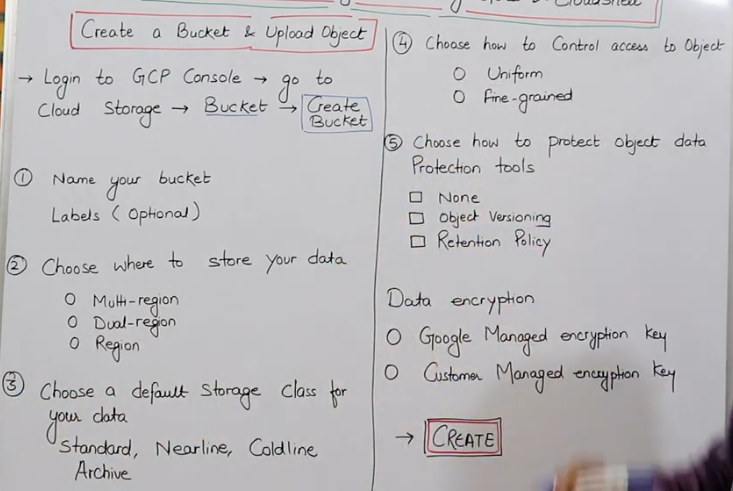 Cloudshell
Create a Bucket & Upload Object
→ Login to GCP Console → go to
Cloud Storage → Bucket → Create
Bucket
① Name your bucket
Labels (Optional)
② Choose where to store your data
○ Multi-region
○ Dual-region
○ Region
③ Choose a default Storage Class for
your data
Standard, Nearline, Coldline
Archive
④ Choose how to Control access to Object
○ Uniform
○ Fine-grained
⑤ Choose how to protect object data
Protection tools
□ None
□ Object Versioning
□ Retention Policy
Data encryption
○ Google Managed encryption key
○ Customer Managed encryption key
→ CREATE